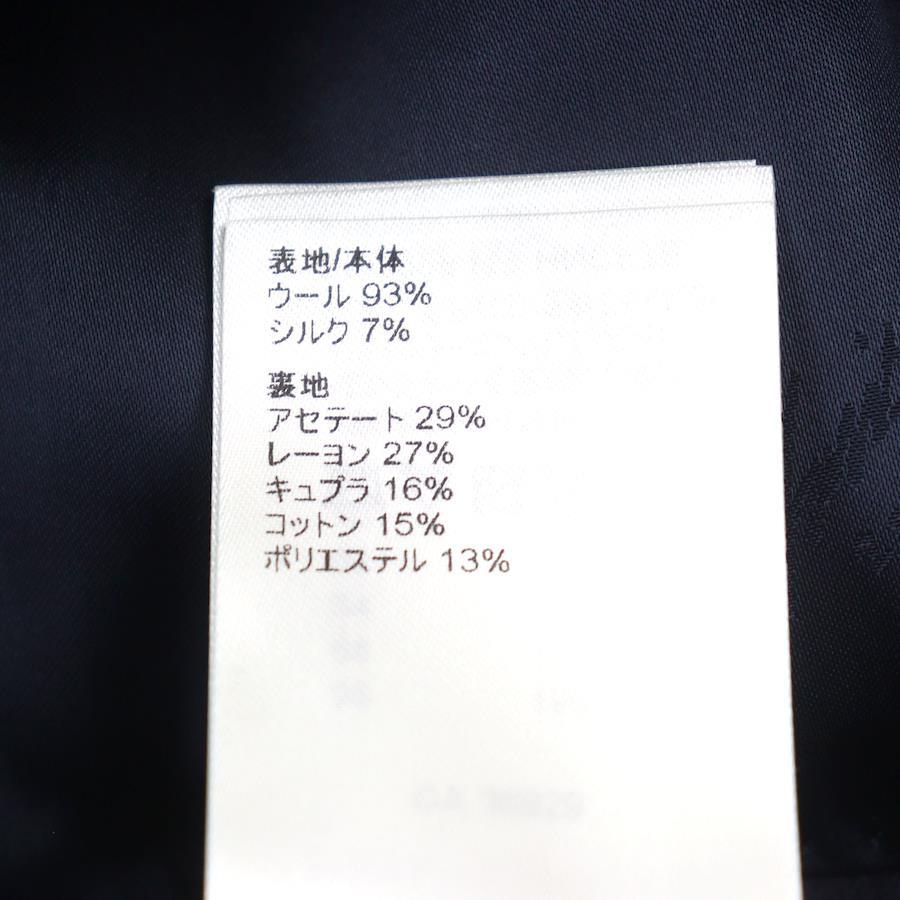 表地/本体
ウール 93%
シルク 7%
裏地
アセテート 29%
レーヨン 27%
キュプラ 16%
コットン 15%
ポリエステル 13%